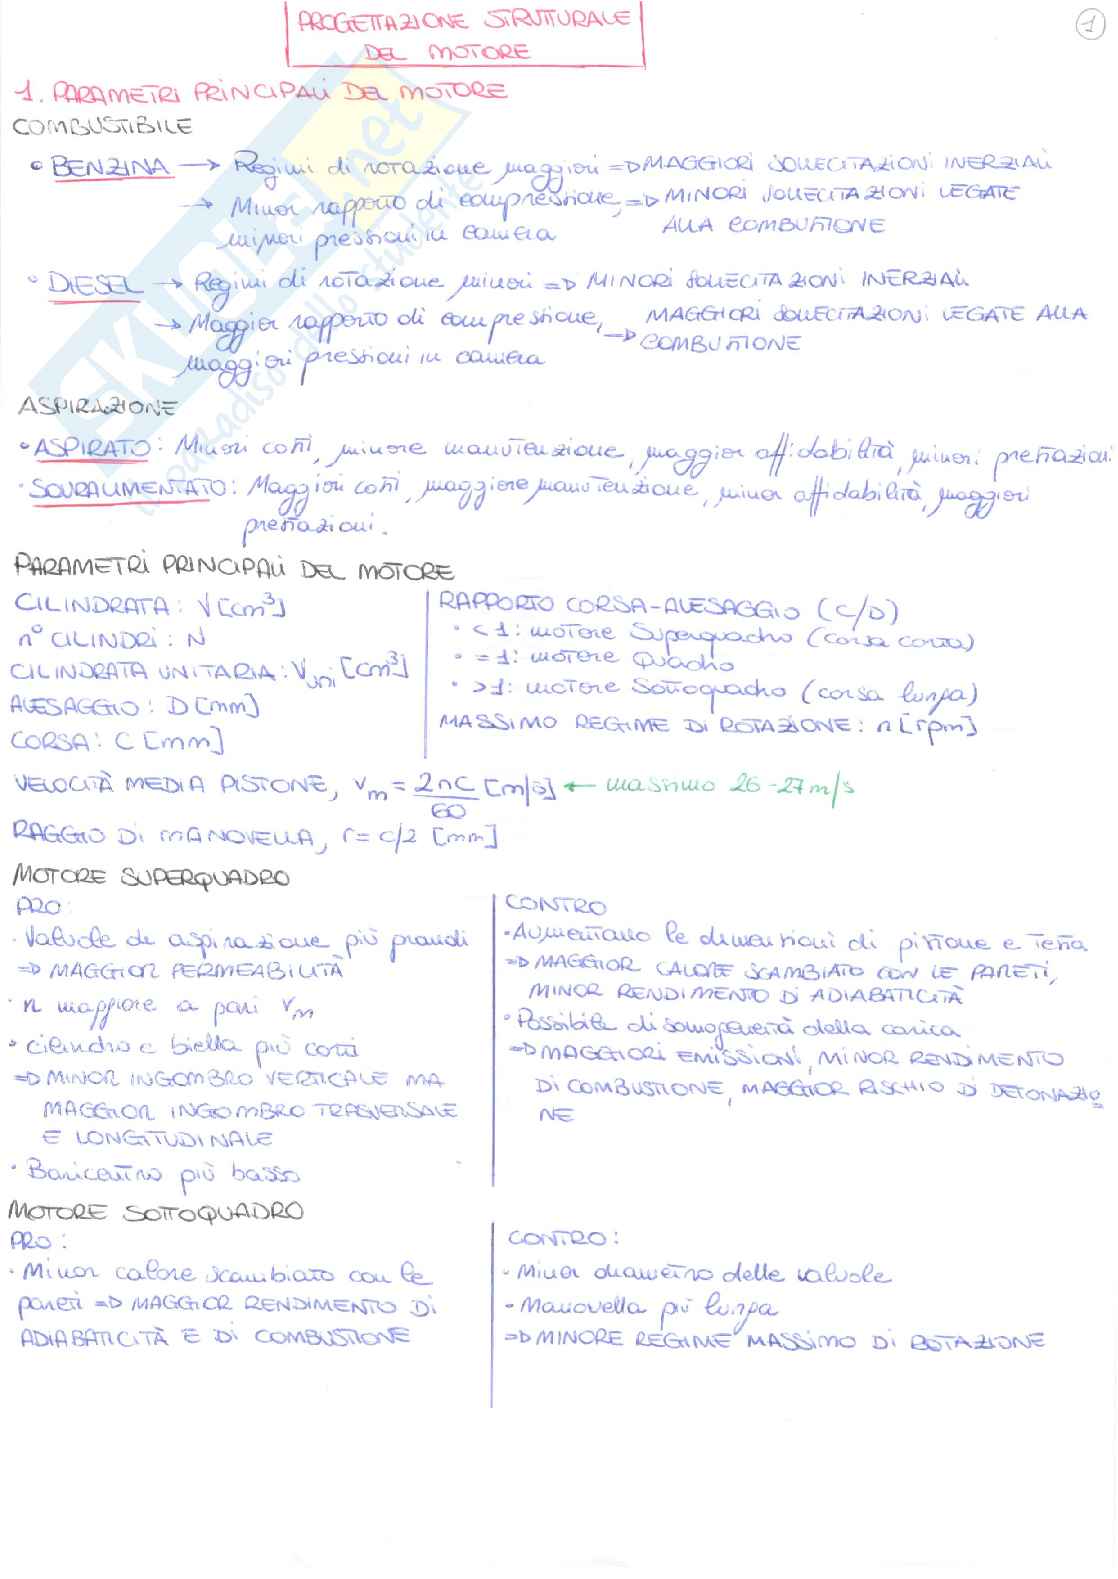 PROGETTAZIONE STRUTTURALE
DEL MOTORE
1
1. PARAMETRI PRINCIPALI DEL MOTORE
COMBUSTIBILE
• BENZINA → Regimi di rotazione maggiori => MAGGIORI SOLLECITAZIONI INERZIALI
→ Minor rapporto di compressione, => MINORI SOLLECITAZIONI LEGATE
minori pressioni in camera ALLA COMBUSTIONE
• DIESEL → Regimi di rotazione minori => MINORI SOLLECITAZIONI INERZIALI
→ Maggior rapporto di compressione, => MAGGIORI SOLLECITAZIONI LEGATE ALLA
maggiori pressioni in camera COMBUSTIONE
ASPIRAZIONE
• ASPIRATO: Minori costi, minore manutenzione, maggior affidabilità, minori prestazioni
• SOVRALIMENTATO: Maggiori costi, maggiore manutenzione, minor affidabilità, maggiori
prestazioni.
PARAMETRI PRINCIPALI DEL MOTORE
CILINDRATA: V [cm³]
n° CILINDRI: N
CILINDRATA UNITARIA: Vuni [cm³]
ALESAGGIO: D [mm]
CORSA: C [mm]
RAPPORTO CORSA-ALESAGGIO (C/D)
• <1: motore Superquadro (corsa corta)
• =1: motore Quadro
• >1: motore Sottoquadro (corsa lunga)
MASSIMO REGIME DI ROTAZIONE: n [rpm]
VELOCITÀ MEDIA PISTONE, vm = 2nC/60 [m/s] ← massimo 26-27 m/s
RAGGIO DI MANOVELLA, r = c/2 [mm]
MOTORE SUPERQUADRO
PRO:
• Valvole di aspirazione più grandi
=> MAGGIOR PERMEABILITÀ
• n maggiore a pari vm
• cilindro e biella più corti
=> MINOR INGOMBRO VERTICALE MA
MAGGIOR INGOMBRO TRASVERSALE
E LONGITUDINALE
• Baricentro più basso
CONTRO
• Aumentano le dimensioni di pistone e testa
=> MAGGIOR CALORE SCAMBIATO CON LE PARETI,
MINOR RENDIMENTO DI ADIABATICITÀ
• Possibile disomogeneità della carica
=> MAGGIORI EMISSIONI, MINOR RENDIMENTO
DI COMBUSTIONE, MAGGIOR RISCHIO DI DETONAZIO
NE
MOTORE SOTTOQUADRO
PRO:
• Minor calore scambiato con le
pareti => MAGGIOR RENDIMENTO DI
ADIABATICITÀ E DI COMBUSTIONE
CONTRO:
• Minor diametro delle valvole
• Manovella più lunga
=> MINORE REGIME MASSIMO DI ROTAZIONE
SKUOLA.net
il paradiso dello studente